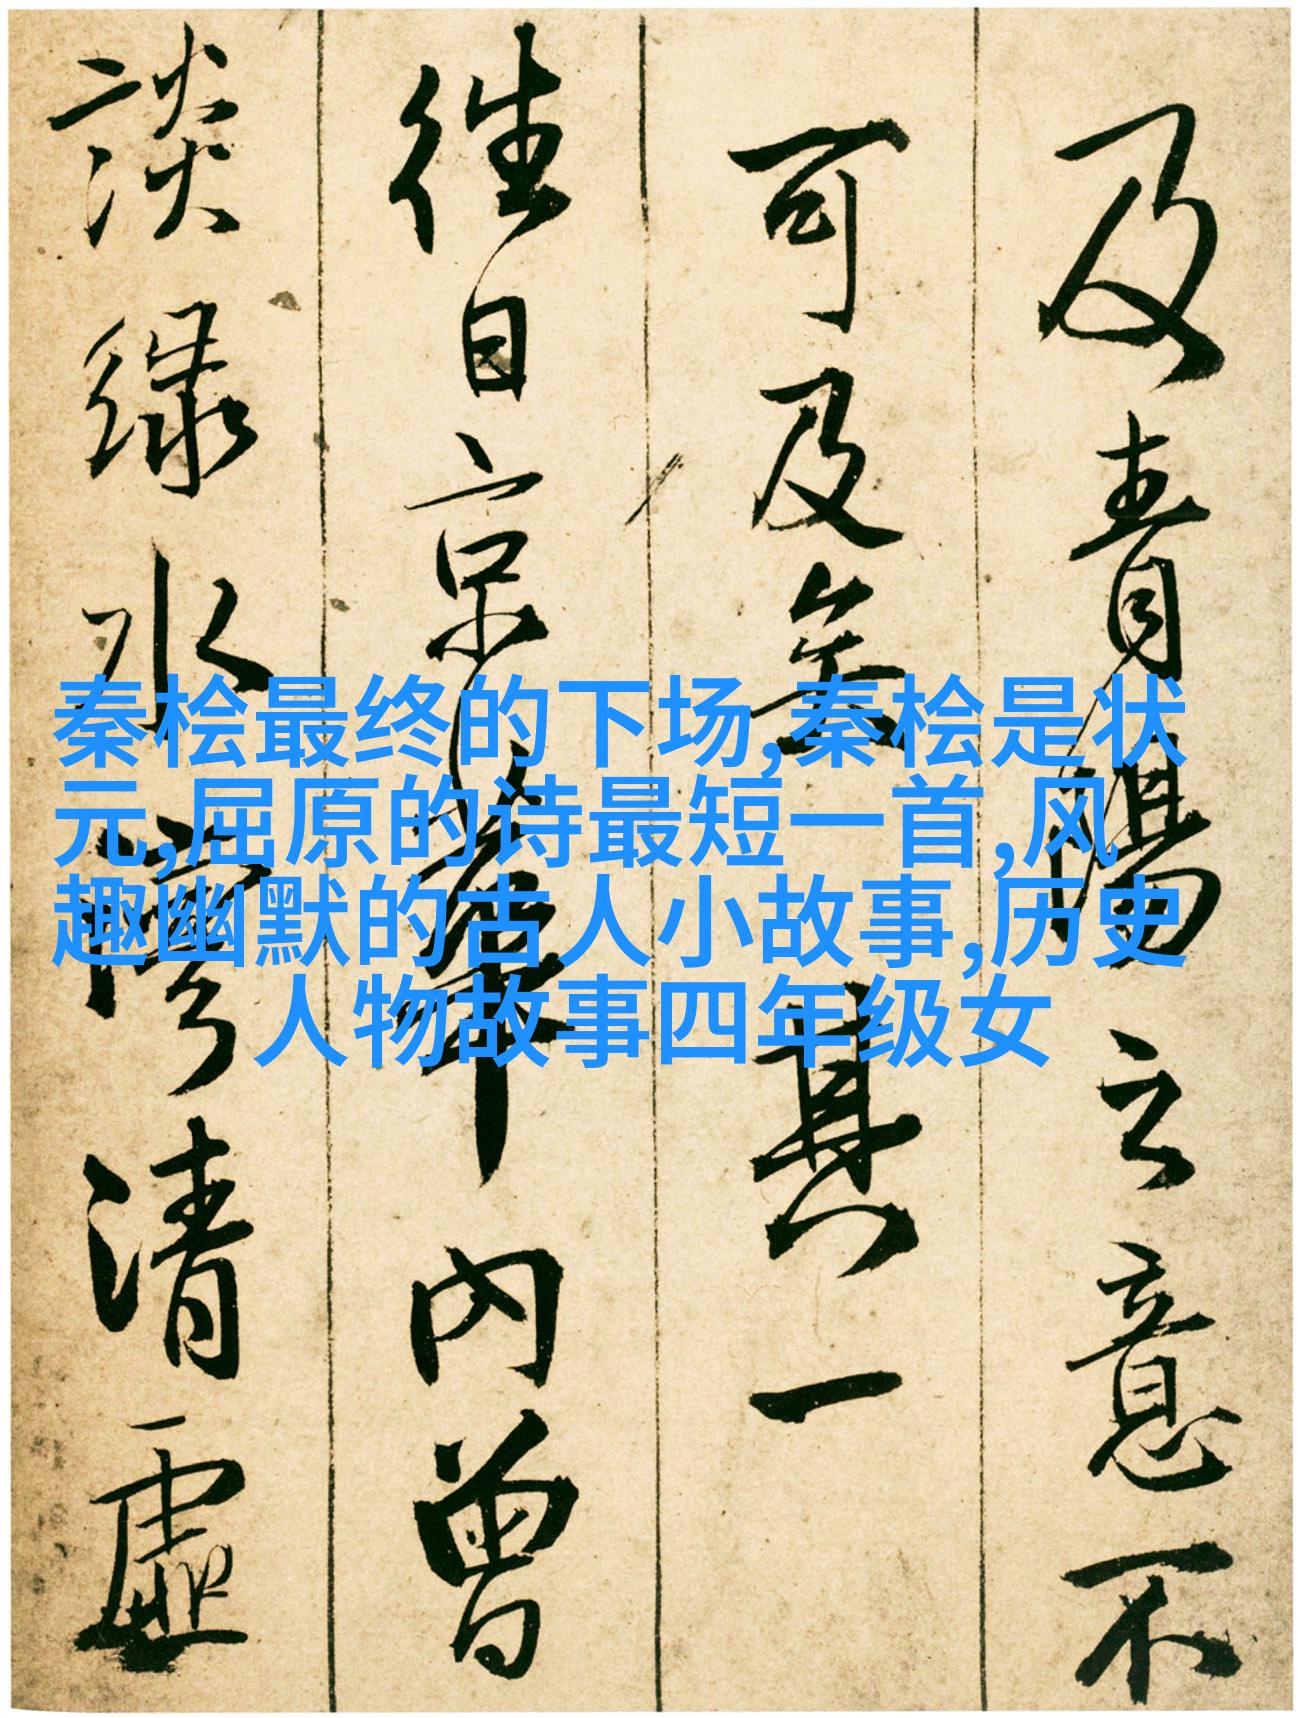 及青陽意不
可及矣其一
往日京華内曾
談緑水清虛
秦桧最终的下场,秦桧是状
元,屈原的诗最短一首,风
趣幽默的古人小故事,历史
人物故事四年级女